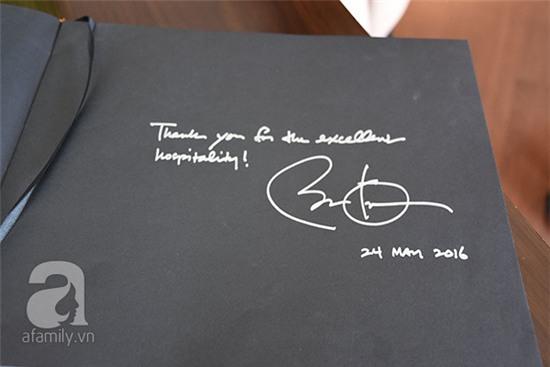 Thank you for the excellent
hospitality!
24 MAY 2016
a
afamily.vn